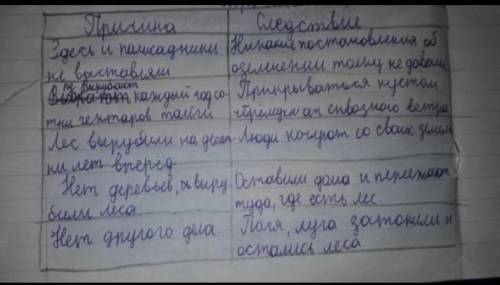 Причина Следствие
Здесь и палисадники Никакие постановления об
не выставляли озеленении толку не давали
Вырубают каждый год со- Прикрываться кустом
тни гектаров тайги черемухи от сквозного ветра
Лес вырубили на десят- Люди кочуют со своих земель
ки лет вперёд
Нет деревьев, выру- Оставили дома и переезжают
били леса туда, где есть лес.
Нет другого дела Поля, луга затопили и
остались леса